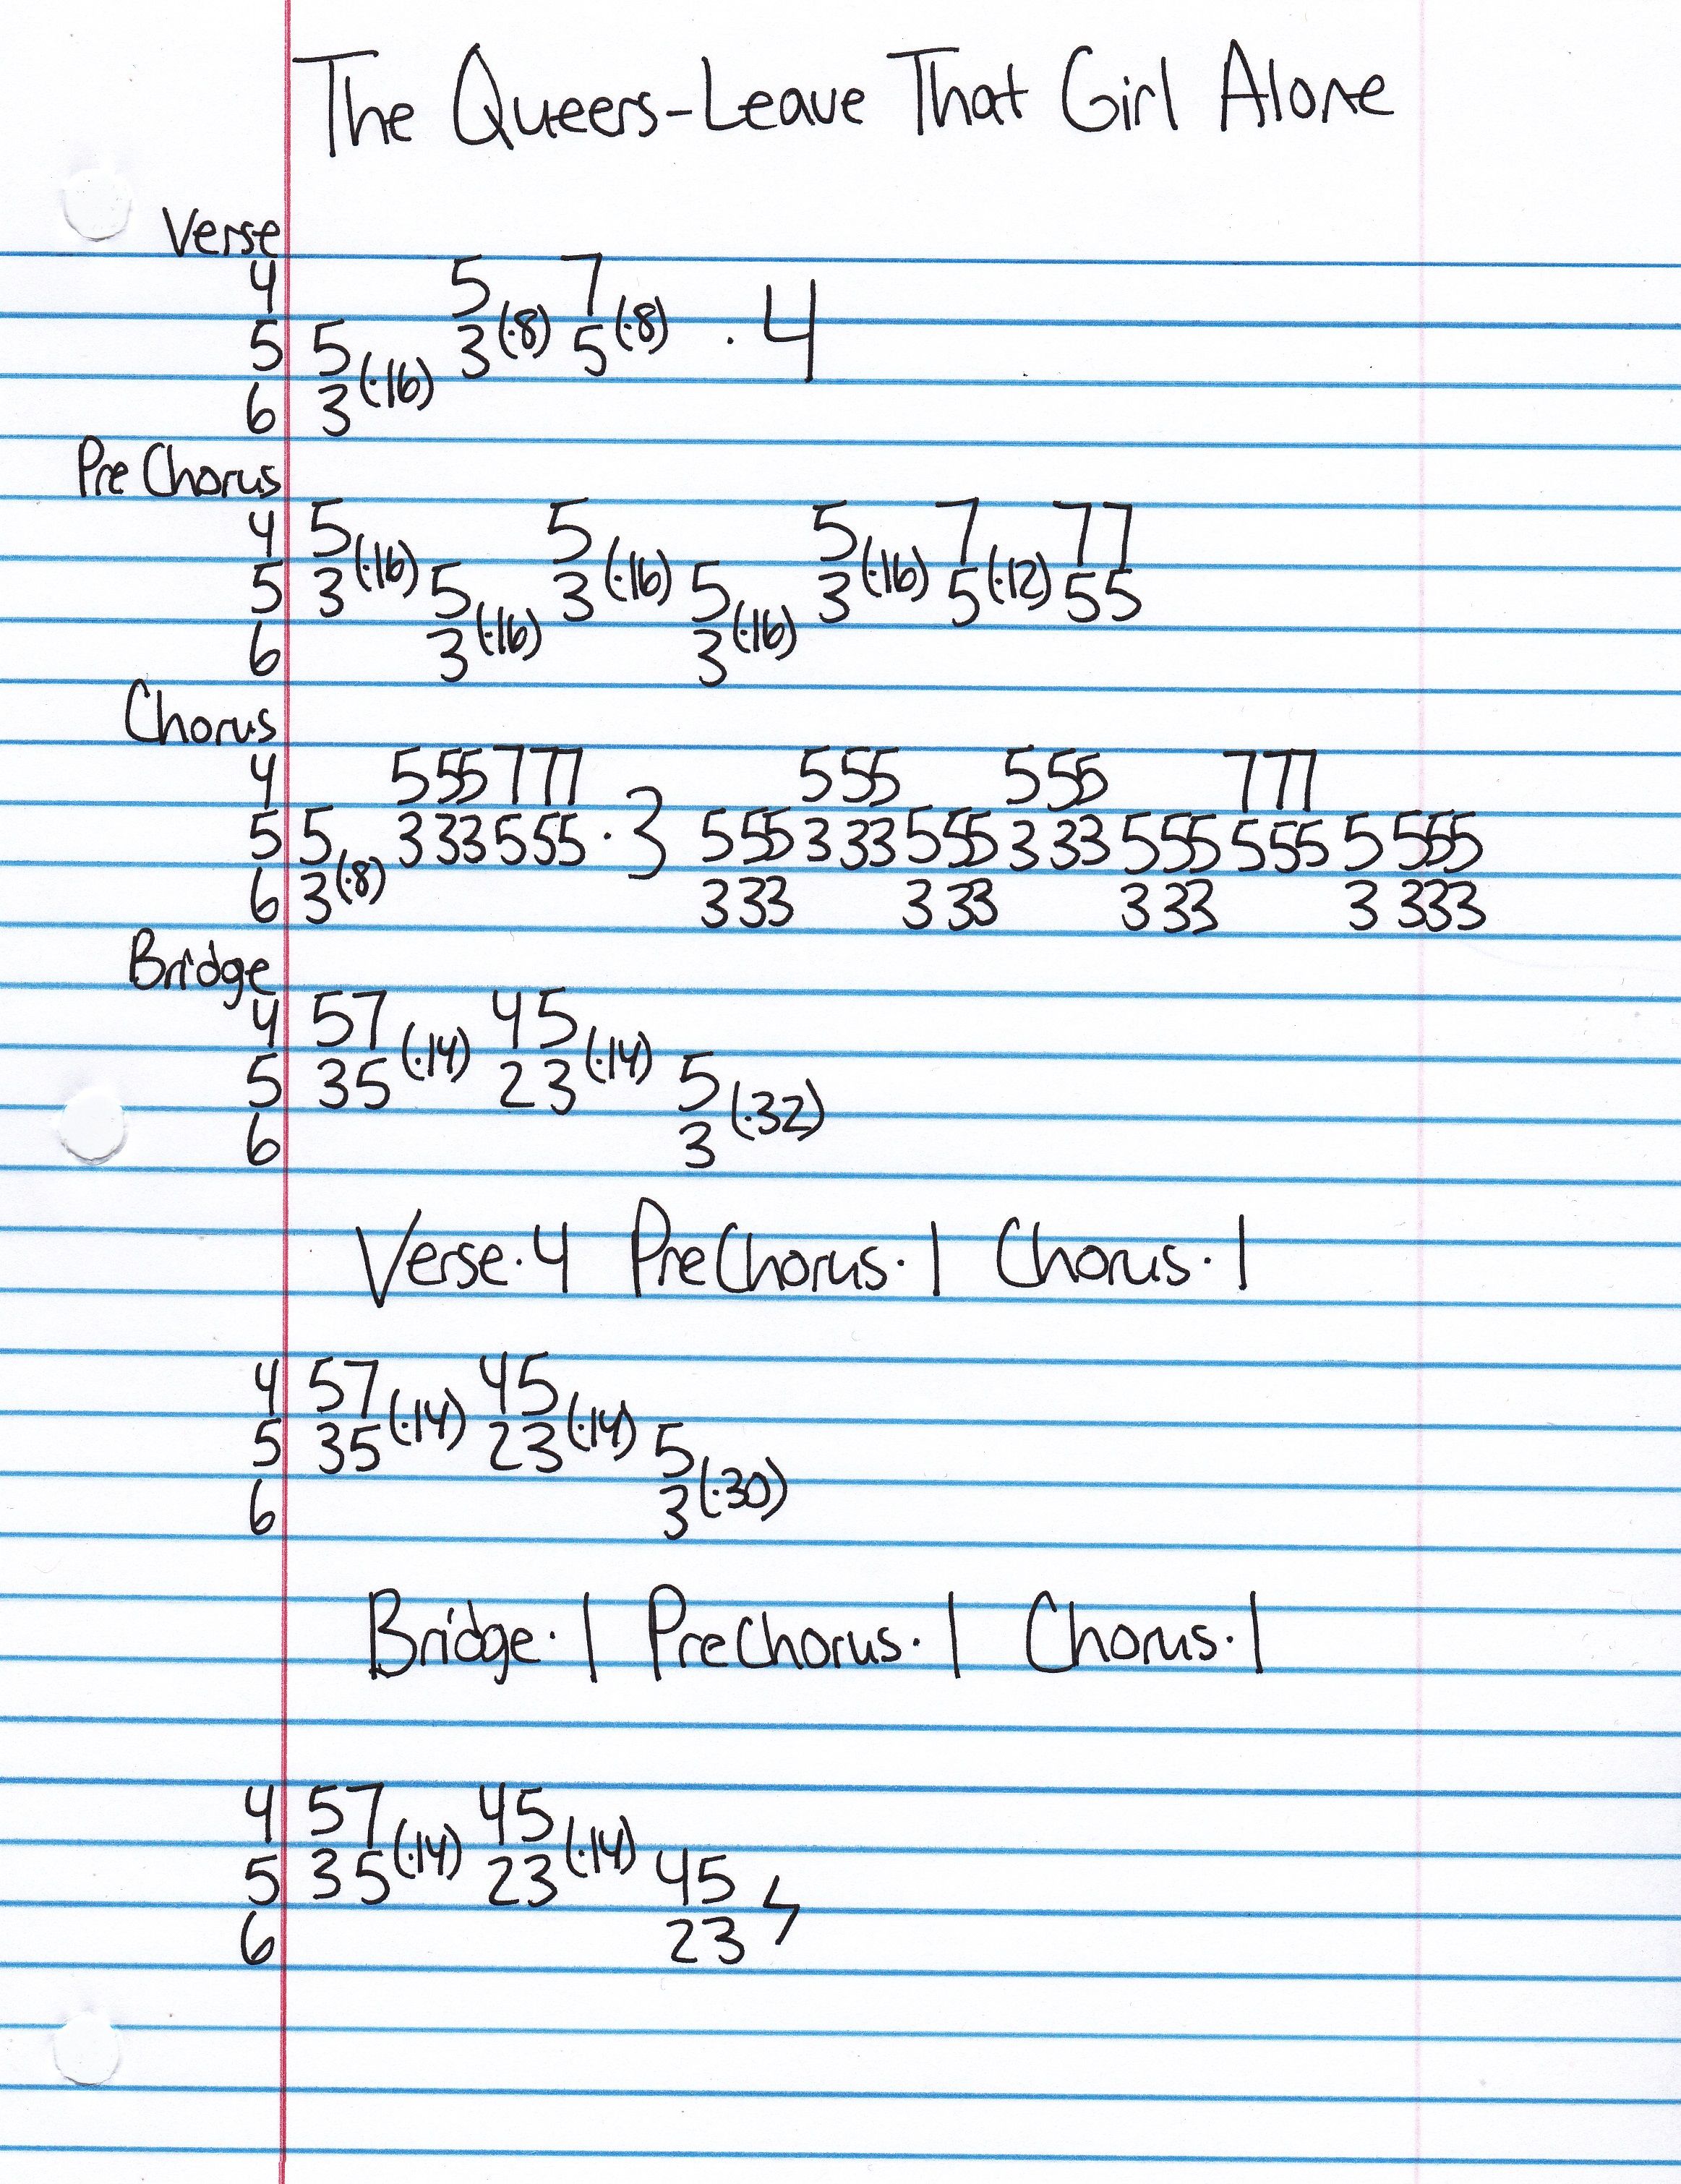 The Queers-Leave That Girl Alone
Verse
4 5 7
5 5 3(·8) 5(·8) · 4
6 3(·16)
Pre Chorus
4 5 5 5 7 77
5 3(·16) 5 3(·16) 5 3(·16) 5(·12) 55
6 3(·16) 3(·16)
Chorus
4 555777 555 555 777
5 5 333555 · 3 555333555333555555 5 555
6 3(·8) 333 333 333 3 333
Bridge
4 57 45
5 35(·14) 23(·14) 5
6 3(·32)
Verse·4 PreChorus·1 Chorus·1
4 57 45
5 35(·14) 23(·14) 5
6 3(·30)
Bridge·1 PreChorus·1 Chorus·1
4 57 45
5 35(·14) 23(·14) 45
6 23